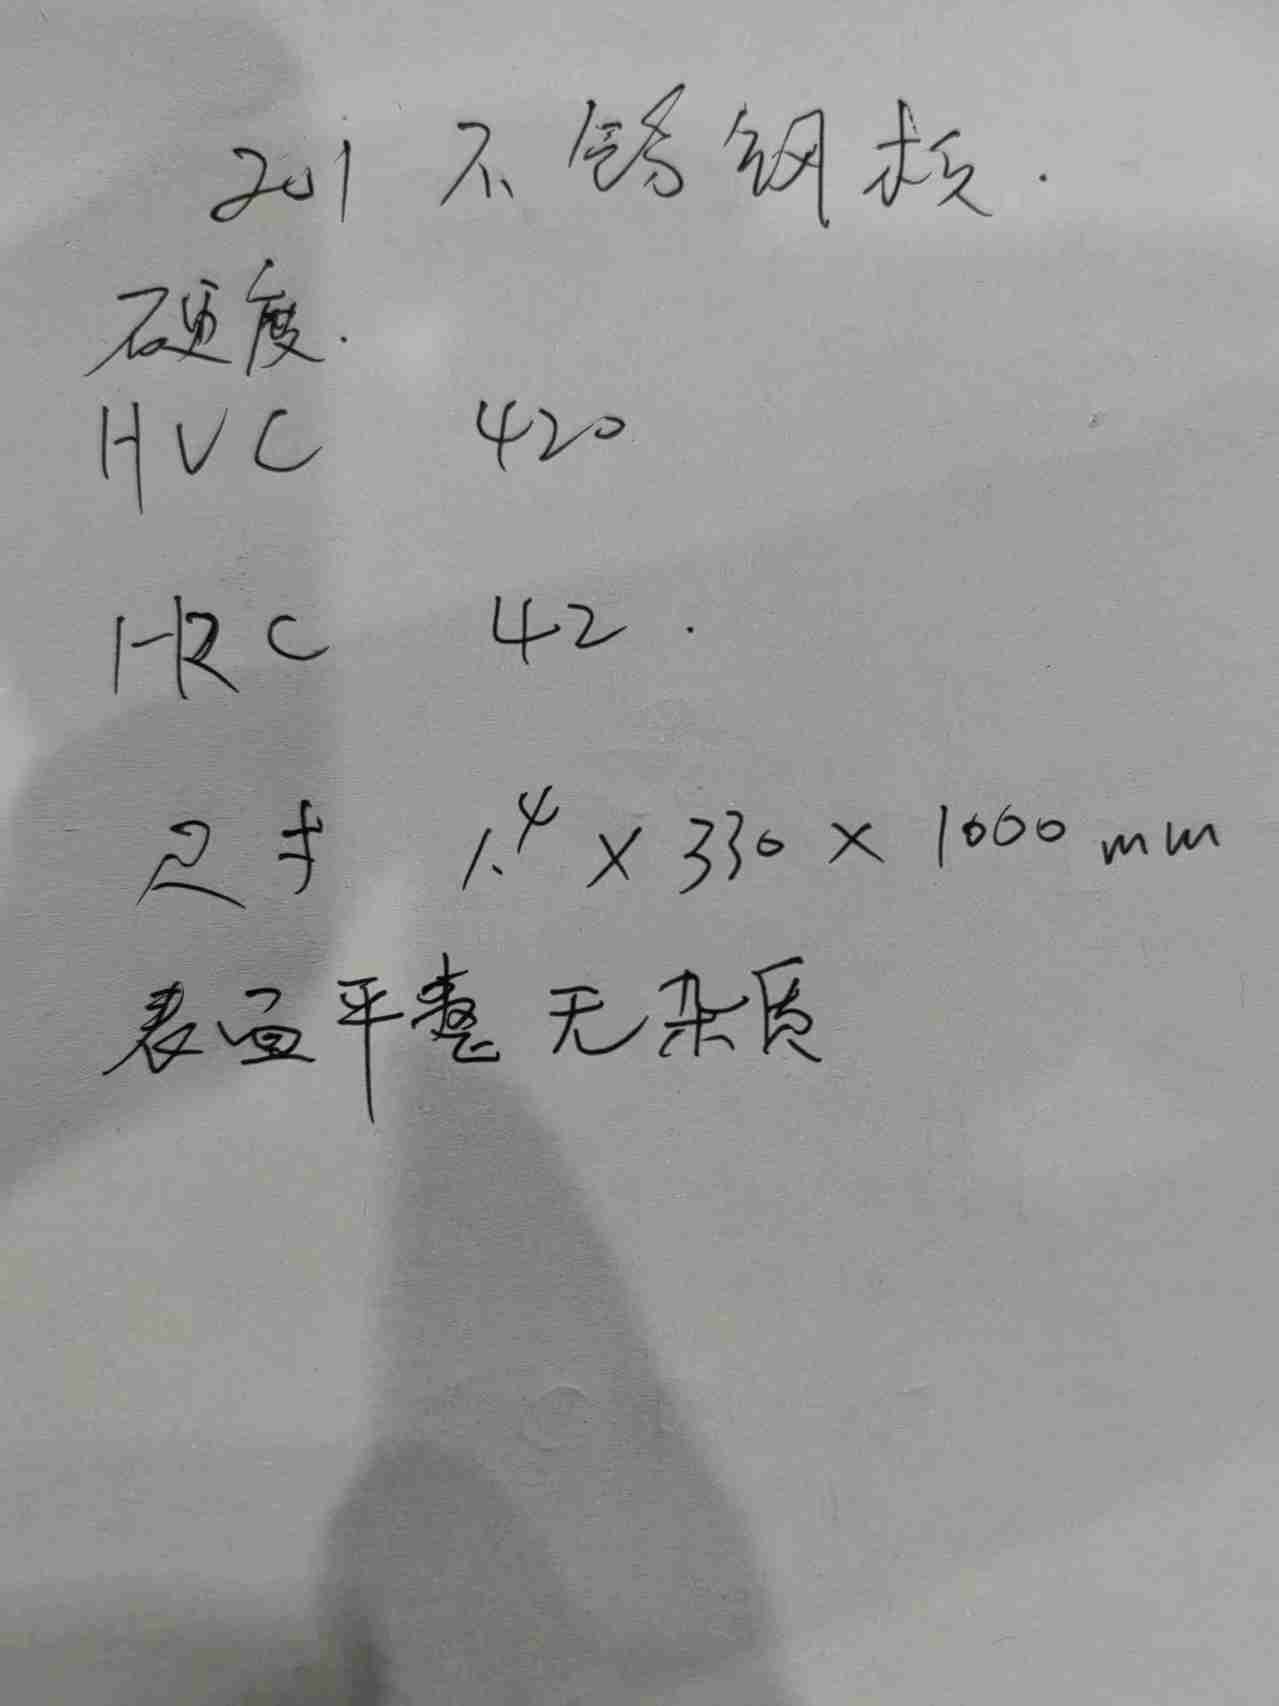 201 不锈钢板.
硬度.
HVC 420
HRC 42.
尺寸 1.4 × 330 × 1000 mm
表面平整 无杂质